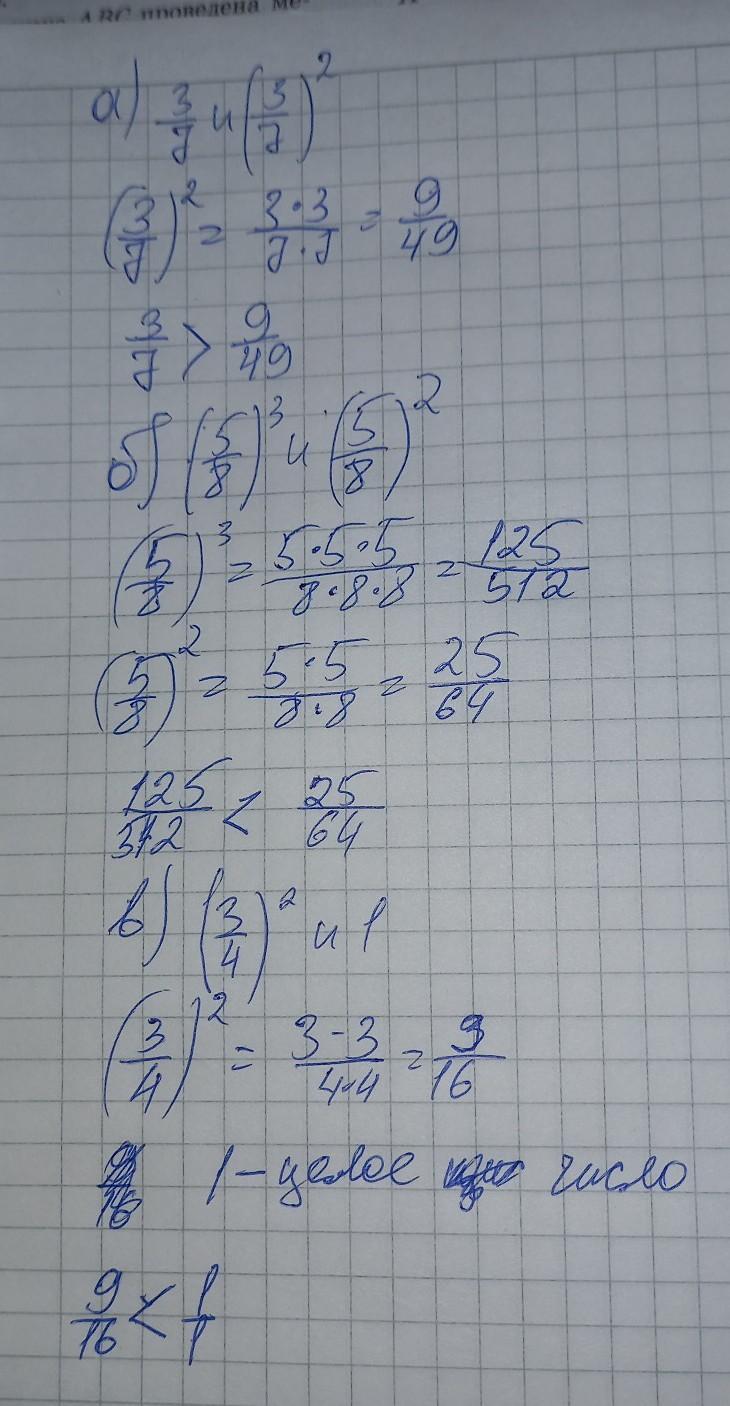 ABC проведена ме-
а) 3/7 и (3/7)^2
(3/7)^2 = 3·3/7·7 = 9/49
3/7 > 9/49
б) (5/8)^3 и (5/8)^2
(5/8)^3 = 5·5·5/8·8·8 = 125/512
(5/8)^2 = 5·5/8·8 = 25/64
125/512 < 25/64
в) (3/4)^2 и 1
(3/4)^2 = 3·3/4·4 = 9/16
1 – целое число
9/16 < 1/1